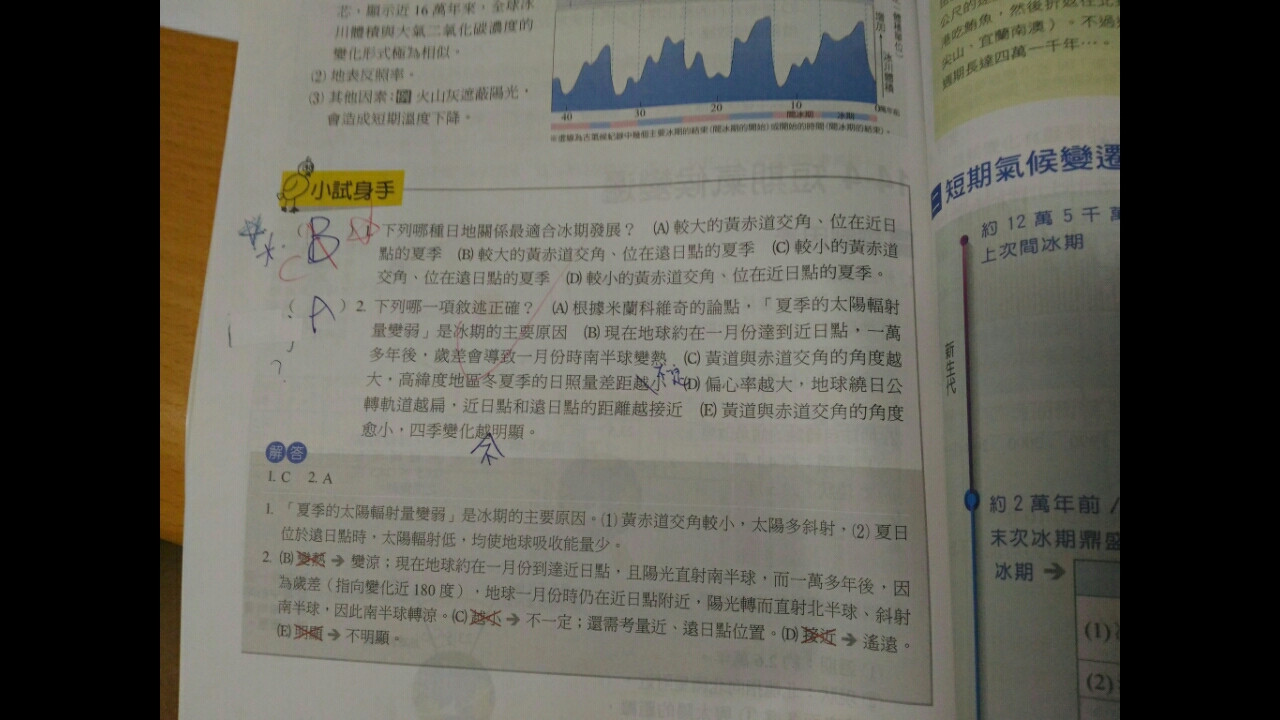 芯，顯示近 16 萬年來，全球冰
川體積與大氣二氧化碳濃度的
變化形式極為相似。
(2) 地表反照率。
(3) 其他因素：例 火山灰遮蔽陽光，
會造成短期溫度下降。
增加
冰川體積
40 30 20 10 0 萬年前
間冰期 冰期
公尺的
，然後折返往北
港吃鮪魚
尖山、宜蘭南澳）。不過
週期長達四萬一千年…。
小試身手
B
C
1. 下列哪種日地關係最適合冰期發展？ (A) 較大的黃赤道交角、位在近日
點的夏季 (B) 較大的黃赤道交角、位在遠日點的夏季 (C) 較小的黃赤道
交角、位在遠日點的夏季 (D) 較小的黃赤道交角、位在近日點的夏季。
( A ) 2. 下列哪一項敘述正確？ (A) 根據米蘭科維奇的論點，「夏季的太陽輻射
量變弱」是冰期的主要原因 (B) 現在地球約在一月份達到近日點，一萬
多年後，歲差會導致一月份時南半球變熱 (C) 黃道與赤道交角的角度越
大，高緯度地區冬夏季的日照量差距越小 不定 (D) 偏心率越大，地球繞日公
轉軌道越扁，近日點和遠日點的距離越接近 (E) 黃道與赤道交角的角度
愈小，四季變化越明顯。
不
?
解答
1. C 2. A
1. 「夏季的太陽輻射量變弱」是冰期的主要原因。(1) 黃赤道交角較小，太陽多斜射，(2) 夏日
位於遠日點時，太陽輻射低，均使地球吸收能量少。
2. (B) 變熱 → 變涼；現在地球約在一月份到達近日點，且陽光直射南半球，而一萬多年後，因
為歲差（指向變化近 180 度），地球一月份時仍在近日點附近，陽光轉而直射北半球、斜射
南半球，因此南半球轉涼。(C) 越小 → 不一定；還需考量近、遠日點位置。(D) 接近 → 遙遠。
(E) 明顯 → 不明顯。
二 短期氣候變遷
約 12 萬 5 千萬
上次間冰期
新生代
約 2 萬年前 /
末次冰期鼎盛
冰期 →
(1)
(2)